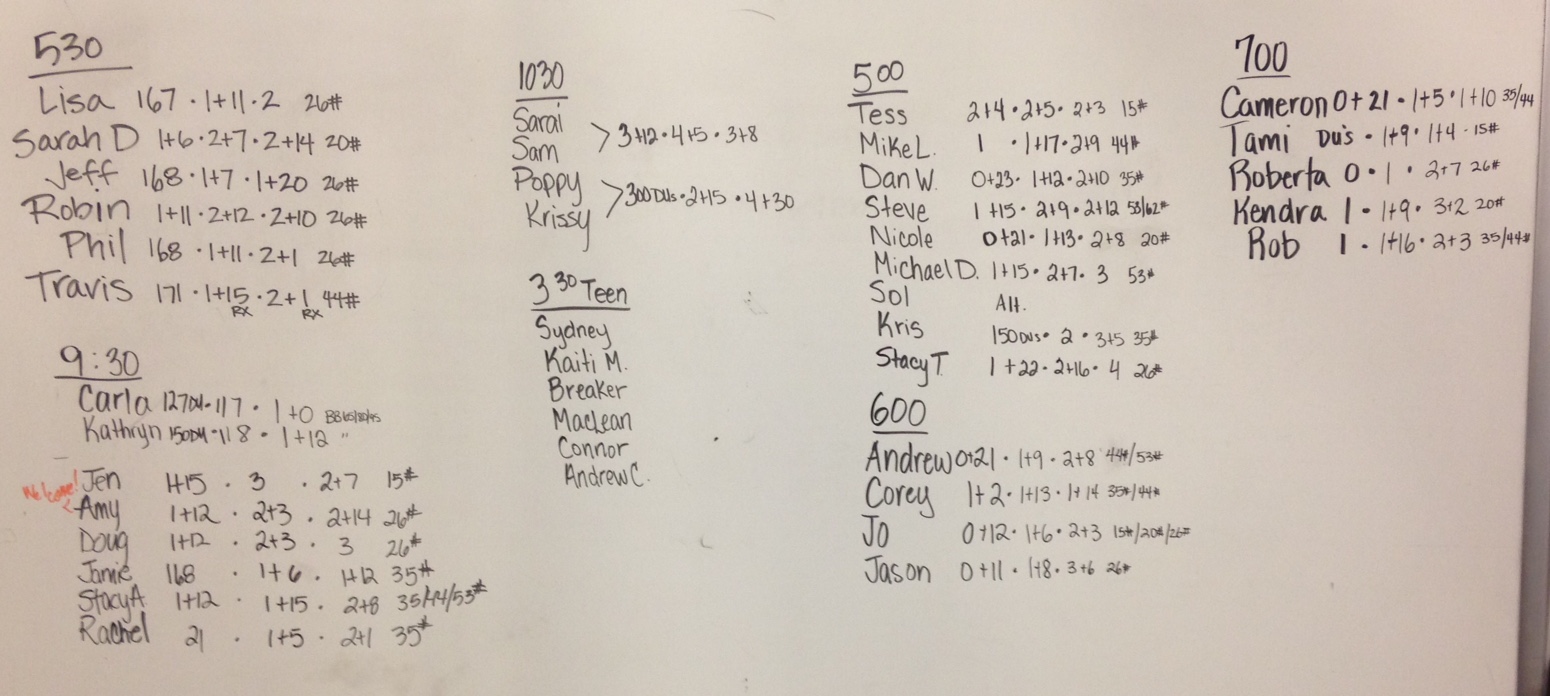 530
Lisa 167 · 1+11 · 2 26#
Sarah D 1+6 · 2+7 · 2+14 20#
Jeff 168 · 1+7 · 1+20 26#
Robin 1+11 · 2+12 · 2+10 26#
Phil 168 · 1+11 · 2+1 26#
Travis 171 · 1+15 · 2+1 44#
RX RX
9:30
Carla 127DU · 117 · 1+0
Kathryn 150DU · 118 · 1+12 "
Welcome!
Jen 1+15 · 3 · 2+7 15#
Amy 1+12 · 2+3 · 2+14 26#
Doug 1+12 · 2+3 · 3 26#
Jamie 168 · 1+6 · 1+12 35#
Stacy A 1+12 · 1+15 · 2+8 35/44/53#
Rachel 21 · 1+5 · 2+1 35#
1030
Sarai
Sam
3+12 · 4+5 · 3+8
Poppy
Krissy
300 DUs · 2+15 · 4+30
3 30 Teen
Sydney
Kaiti M.
Breaker
MacLean
Connor
Andrew C.
500
Tess 2+4 · 2+5 · 2+3 15#
Mike L. 1 · 1+17 · 2+9 44#
Dan W. 0+23 · 1+12 · 2+10 35#
Steve 1+15 · 2+9 · 2+12 53/62#
Nicole 0+21 · 1+13 · 2+8 20#
Michael D. 1+15 · 2+7 · 3 53#
Sol Alt.
Kris 150 DUs · 2 · 3+5 35#
Stacy T. 1+22 · 2+16 · 4 26#
600
Andrew 0+21 · 1+9 · 2+8 44#/53#
Corey 1+2 · 1+13 · 1+14 35#/44#
Jo 0+12 · 1+6 · 2+3 15#/20#/26#
Jason 0+11 · 1+8 · 3+6 26#
700
Cameron 0+21 · 1+5 · 1+10 35/44
Tami DU's · 1+9 · 1+4 · 15#
Roberta 0 · 1 · 2+7 26#
Kendra 1 · 1+9 · 3+2 20#
Rob 1 · 1+16 · 2+3 35/44#